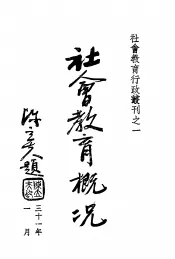 社會教育行政叢刊之一
社會教育概況
陳立夫題
三十一年
一月